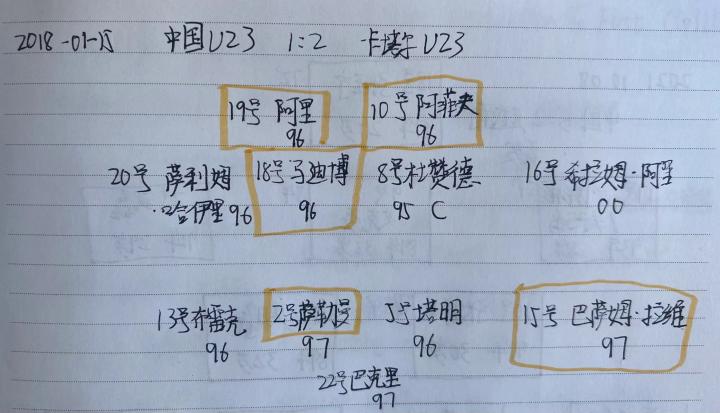 2018-01-15 中国U23 1:2 卡塔尔U23
19号 阿里 10号 阿菲夫
96 96
20号 萨利姆 18号马迪博 8号杜赞德 16号 希拉姆·阿里
·哈伊里 96 96 95 C 00
13号布雷克 2号萨勒曼 5号塔明 15号 巴萨姆·拉维
96 97 96 97
22号巴克里
97